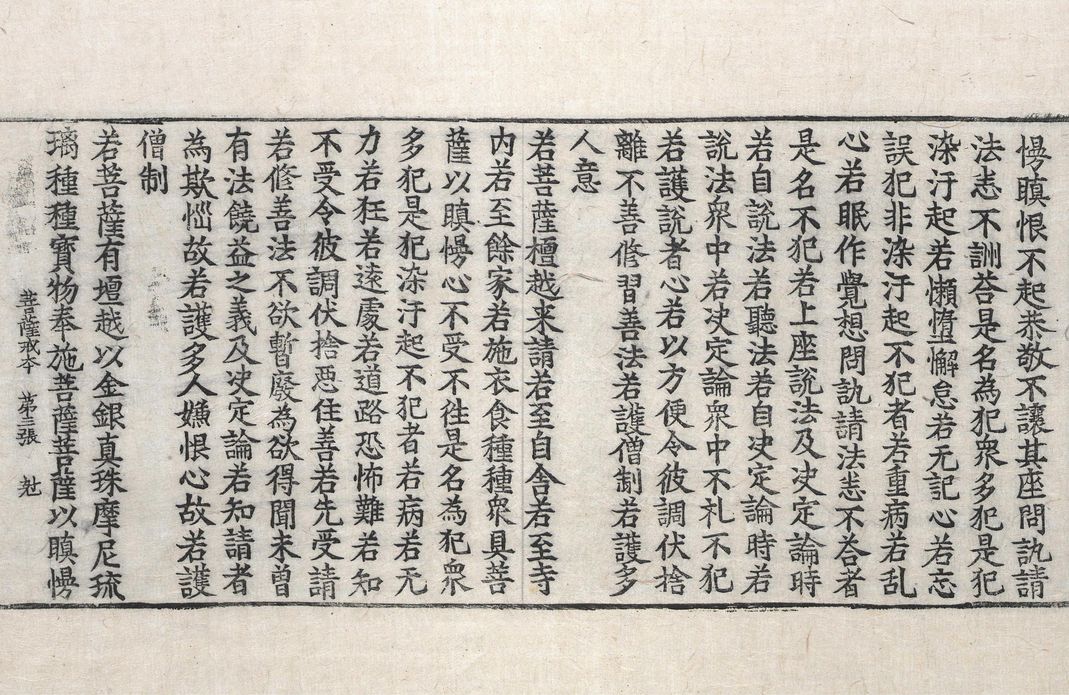 慢瞋恨不起恭敬不讓其座問訊請
法悉不訓荅是名為犯衆多犯是犯
染汙起若懶惰懈怠若无記心若忘
誤犯非染汙起不犯者若重病若乱
心若眠作覺想問訊請法悉不荅者
是名不犯若上座說法及决定論時
若自說法若聽法若自决定論時若
說法衆中若决定論衆中不礼不犯
若護說者心若以方便令彼調伏捨
離不善修習善法若護僧制若護多
人意
若菩薩檀越来請若至自舍若至寺
内若至餘家若施衣食種種衆具菩
薩以瞋慢心不受不往是名為犯衆
多犯是犯染汙起不犯者若病若无
力若狂若遠處若道路恐怖難若知
不受令彼調伏捨惡住善若先受請
若修善法不欲暫廢為欲得聞未曾
有法饒益之義及决定論若知請者
為欺惱故若護多人嫌恨心故若護
僧制
若菩薩有壇越以金銀真珠摩尼琉
璃種種寶物奉施菩薩菩薩以瞋慢
菩薩戒夲 苐三張